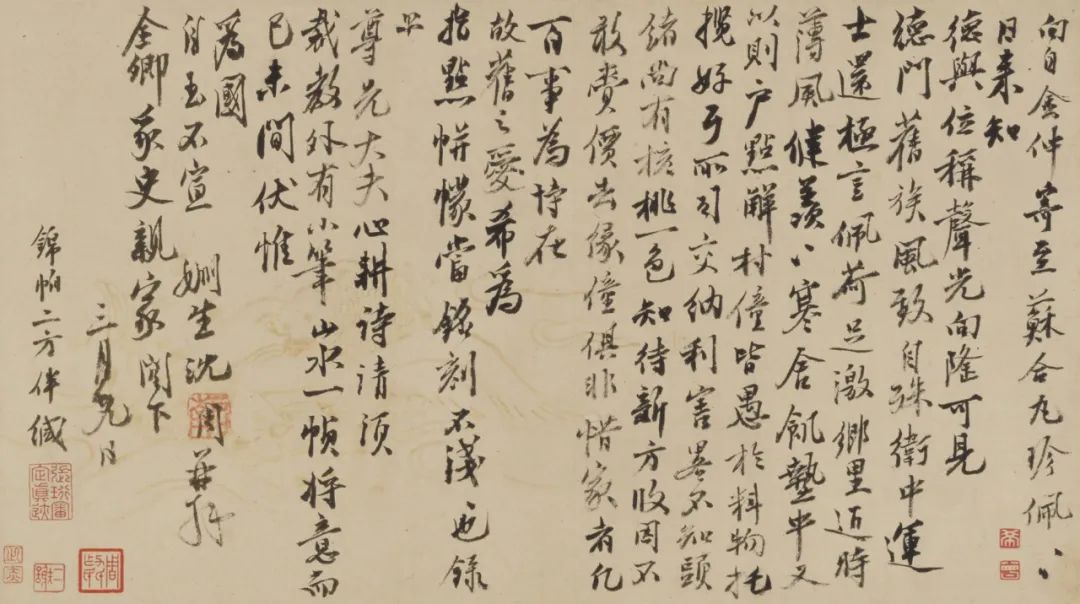 向自金仲寄至蘇合丸珍佩〻
日来知
德與位稱聲光向隆可見
德門舊族風致自殊衛中運
士還極言佩荷足激鄉里近時
薄風健羡〻寒舍飢墊中又
以則户點解村僮皆愚於料物托
攬好亏所司交納利害畧不知頭
緒尚有核桃一色知待新方收因不
敢賣價去緣僮俱非惜家者凡
百事為恃在
故舊之愛希為
指點帡幪當銘刻不淺也錄
上
尊先大夫心耕詩請須
裁教外有小筆山水一幀将意而
已未間伏惟
為國
自玉不宣 姻生沈周再拜
全卿家史親家閣下
三月九日
錦帕二方伴緘